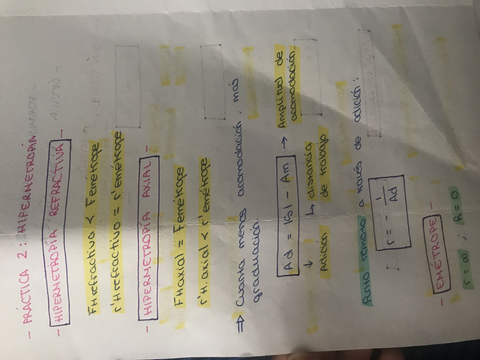 - PRÁCTICA 2: HIPERMETROPÍA
- HIPERMETROPÍA REFRACTIVA -
FH refractivo < F emétrope
r'H refractivo = r' emétrope
- HIPERMETROPÍA AXIAL -
FH axial = F emétrope
r'H. axial < r' emétrope
⇒ Cuanta menos acomodación, más
graduación.
Ad = |βl| - Am → Amplitud de acomodación.
↓ ↳ distancia
Adición de trabajo
remoto a través de adición:
r = - 1/Ad
- EMÉTROPE -
r = ∞ ; R = 0